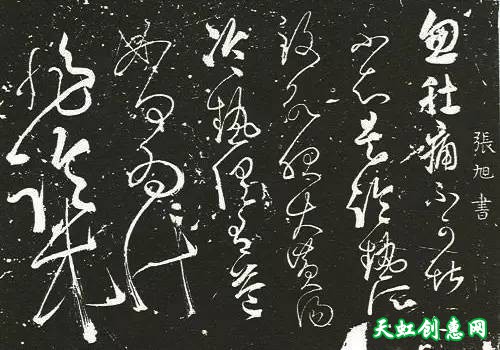 張旭書
忽肚痛不可堪
不知是冷熱所
致欲服大黄湯
冷熱俱有益
如何為計
非臨床
天虹创惠网